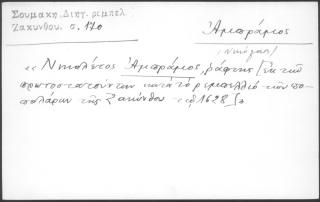 Σουμάκη, Διήγ. ρεμπελ.
Ζακύνθου. σ. 170
Ἀμπράμος
(Νικόλαος)
« Νικολέτος Ἀμπράμος, ράφτης [Ἐκ τῶν
πρωτοστατούντων κατὰ τὸ ρεμπελιὸ τῶν πο-
πολάρων τῆς Ζακύνθου τοῦ 1628]»